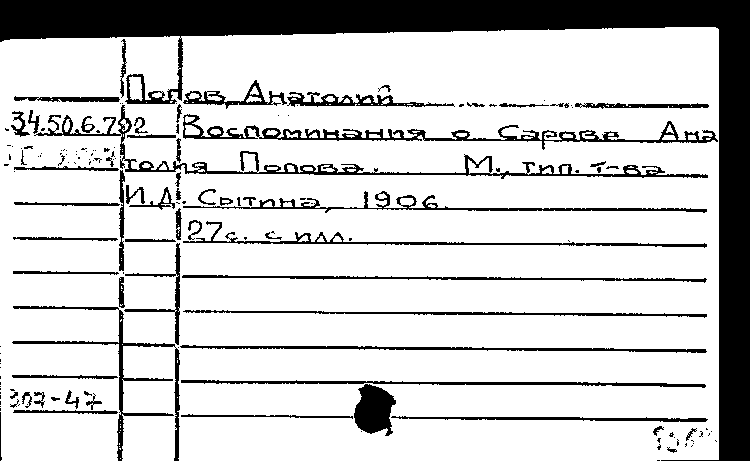 Попов, Анатолий
34.50.6.792 Воспоминания о Сарове Ана
толия Попова. М., тип. т-ва
И.Д. Сытина, 1906.
27с. с илл.
307-47